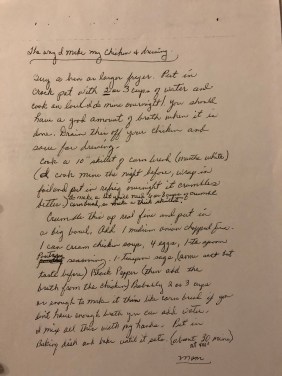 The way I make my chicken & dressing.
Buy a hen or larger fryer. Put in
Crock pot with 2 or 3 cups of water and
cook on low (I do mine overnight) you should
have a good amount of broth when it is
done. Drain this off your chicken and
save for dressing.
Cook a 10" skillet of corn bread (white)
(I cook mine the night before, wrap in
foil and put in refrig overnight it crumbles
better)
Crumble this up real fine and put in
a big bowl. Add 1 medium onion chopped fine.
1 can cream chicken soup, 4 eggs, 1 tbs spoon
Poultry seasoning. 1 teaspoon sage (some but
taste before) Black Pepper then add the
broth from the chicken) Probably 2 or 3 cups
or enough to make it thin like corn bread if you
don't have enough broth you can add water.
I mix all this with my hands. Put in
baking dish and bake until it sets (about 30 mins)
Mom